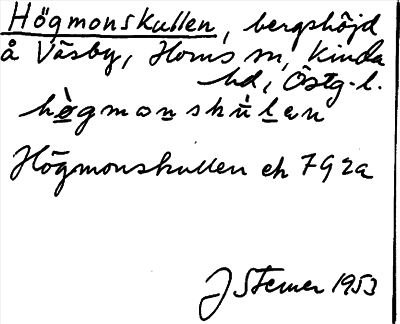 Högmonskullen, bergshöjd
å Väsby, Horns sn, Kinda
hd, Östg. l.
hògmonskùlan
Högmonskullen ek 7G 2a
J Sterner 1953